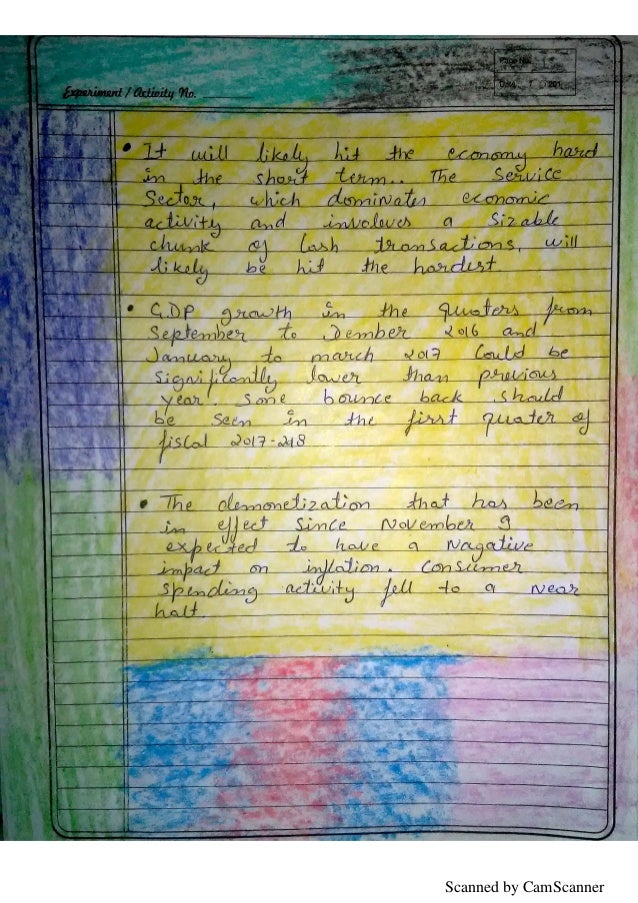 Page No.
Date / / 201
Experiment / Activity No.
• It will likely hit the economy hard
in the short term.. The Service
Sector, which dominates economic
activity and involeves a Sizable
chunk of Cash transactions, will
likely be hit the hardest.
• G.DP growth in the quaters from
September to Dember 2016 and
January to march 2017 Could be
significantly lower than previous
year. Some bounce back should
be seen in the first quater of
fiscal 2017-218
• The demonetization that has been
in effect Since November 9
expected to have a Nagative
impact on inflation. Consumer
spending activity fell to a near
halt.
Scanned by CamScanner